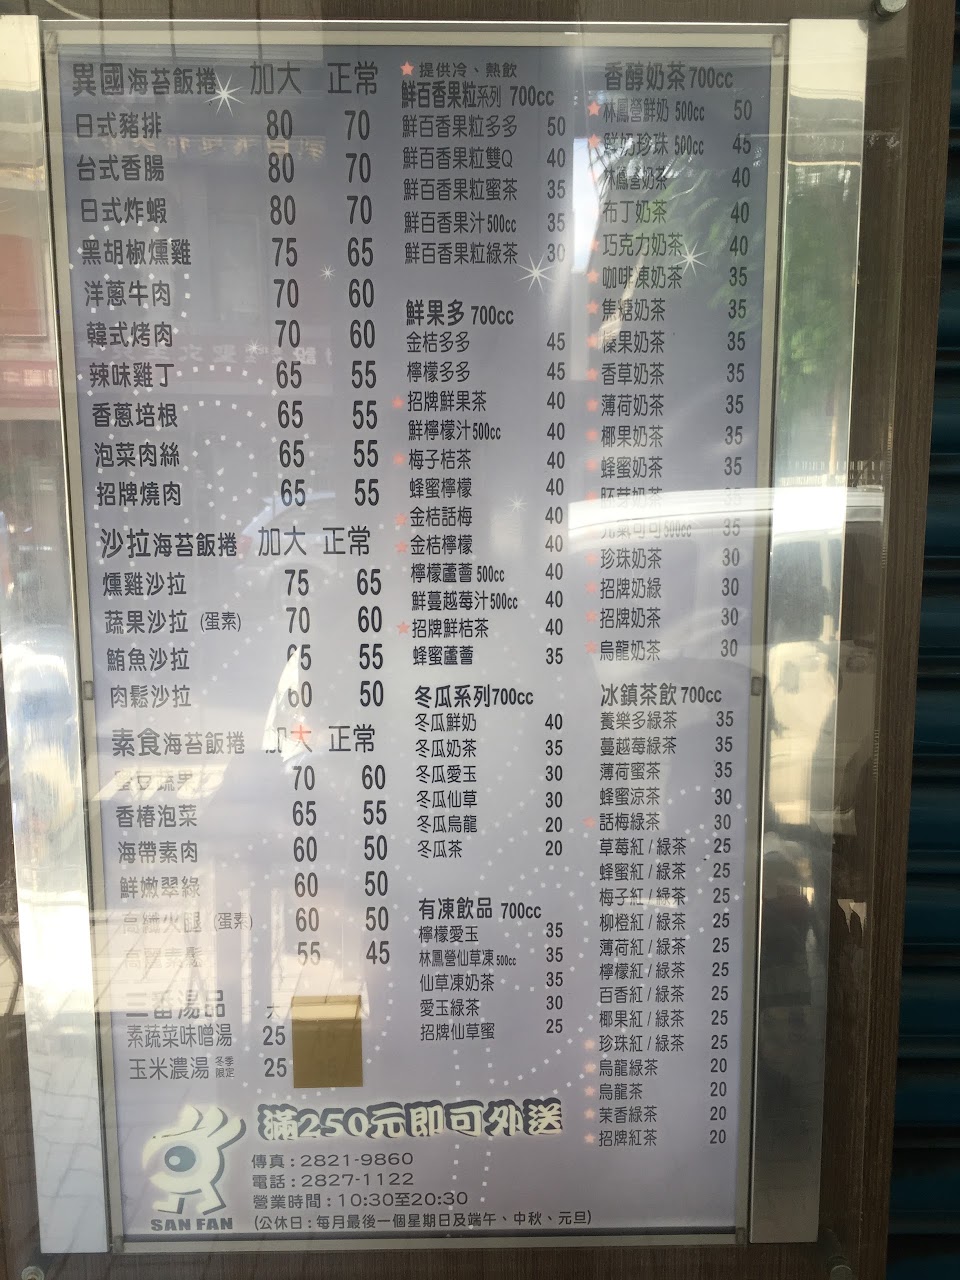 異國海苔飯捲 加大 正常
日式豬排 80 70
台式香腸 80 70
日式炸蝦 80 70
黑胡椒燻雞 75 65
洋蔥牛肉 70 60
韓式烤肉 70 60
辣味雞丁 65 55
香蔥培根 65 55
泡菜肉絲 65 55
招牌燒肉 65 55
沙拉海苔飯捲 加大 正常
燻雞沙拉 75 65
蔬果沙拉 (蛋素) 70 60
鮪魚沙拉 65 55
肉鬆沙拉 60 50
素食海苔飯捲 加大 正常
蔬果 70 60
香椿泡菜 65 55
海帶素肉 60 50
鮮嫩翠綠 60 50
高纖火腿 (蛋素) 60 50
素鬆 55 45
三番湯品 大
素蔬菜味噌湯 25
玉米濃湯 冬季限定 25
★提供冷、熱飲
鮮百香果粒系列 700cc
鮮百香果粒多多 50
鮮百香果粒雙Q 40
鮮百香果粒蜜茶 35
鮮百香果汁500cc 35
鮮百香果粒綠茶 30
鮮果多 700cc
金桔多多 45
檸檬多多 45
★招牌鮮果茶 40
鮮檸檬汁500cc 40
★梅子桔茶 40
蜂蜜檸檬 40
★金桔話梅 40
★金桔檸檬 40
檸檬蘆薈500cc 40
鮮蔓越莓汁500cc 40
★招牌鮮桔茶 40
蜂蜜蘆薈 35
冬瓜系列700cc
冬瓜鮮奶 40
冬瓜奶茶 35
冬瓜愛玉 30
冬瓜仙草 30
冬瓜烏龍 20
冬瓜茶 20
有凍飲品 700cc
檸檬愛玉 35
林鳳營仙草凍500cc 35
仙草凍奶茶 35
愛玉綠茶 30
招牌仙草蜜 25
香醇奶茶700cc
★林鳳營鮮奶 500cc 50
★鮮奶珍珠 500cc 45
★林鳳營奶茶 40
★布丁奶茶 40
★巧克力奶茶 40
★咖啡凍奶茶 35
★焦糖奶茶 35
★榛果奶茶 35
★香草奶茶 35
★薄荷奶茶 35
★椰果奶茶 35
★蜂蜜奶茶 35
★胚芽奶茶 35
元氣可可500cc 35
★珍珠奶茶 30
★招牌奶綠 30
★招牌奶茶 30
★烏龍奶茶 30
冰鎮茶飲700cc
養樂多綠茶 35
蔓越莓綠茶 35
薄荷蜜茶 35
蜂蜜涼茶 30
★話梅綠茶 30
草莓紅/綠茶 25
蜂蜜紅/綠茶 25
梅子紅/綠茶 25
柳橙紅/綠茶 25
薄荷紅/綠茶 25
檸檬紅/綠茶 25
百香紅/綠茶 25
椰果紅/綠茶 25
★珍珠紅/綠茶 25
★烏龍綠茶 20
★烏龍茶 20
★茉香綠茶 20
★招牌紅茶 20
滿250元即可外送
傳真:2821-9860
電話:2827-1122
營業時間:10:30至20:30
(公休日:每月最後一個星期日及端午、中秋、元旦)
SAN FAN